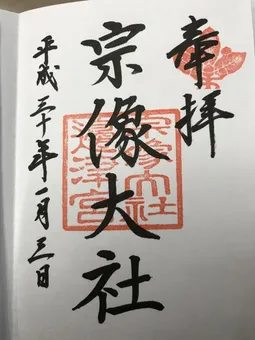 奉拝
宗像大社
宗像大社
辺津宮
平成三十年一月三日